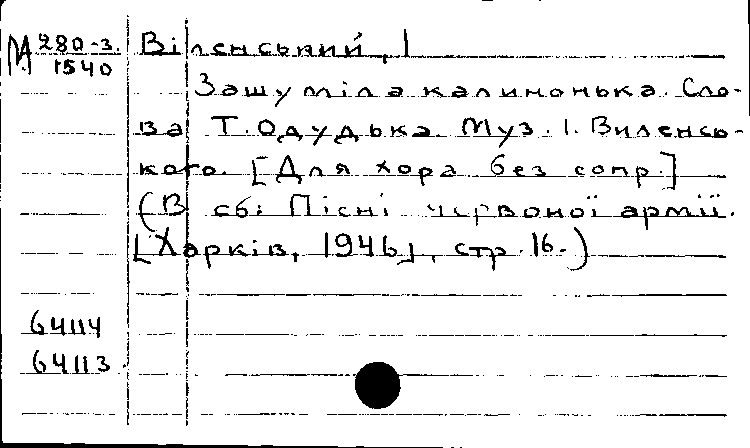 М 280-3. Віленський, І
1540
Зашуміла калинонька. Сло-
ва Т. Одудька. Муз. І. Виленсь-
кого. [Для хора без сопр.]
(В сб: Пісні червоної армії.
[Харків, 1946], стр. 16.)
64114
64113.